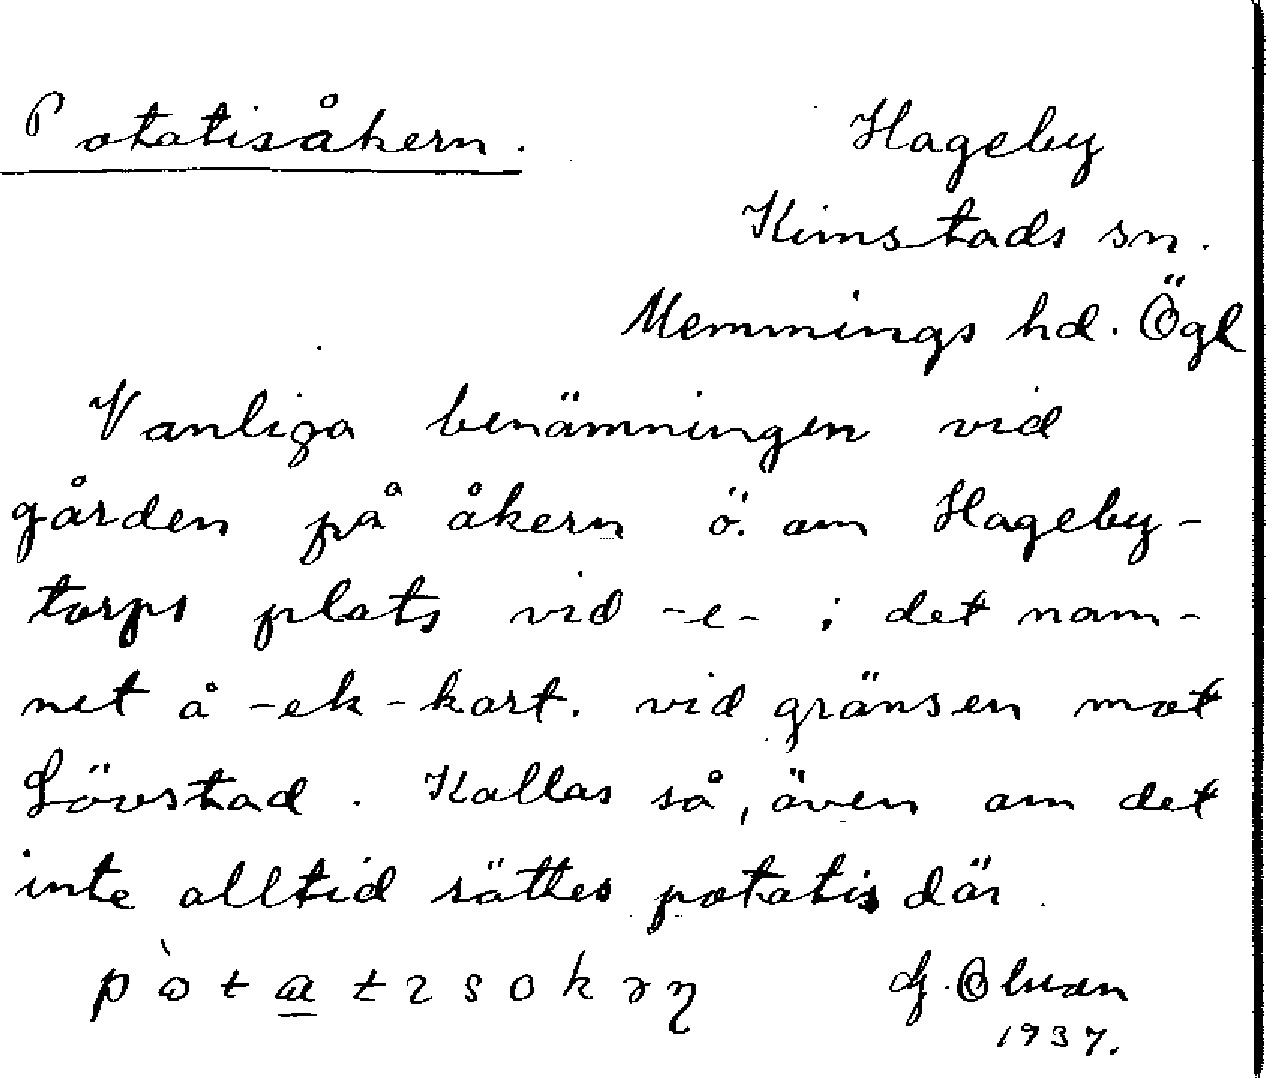 Potatisåkern.
Hageby
Kimstads sn.
Memmings hd. Ögl
Vanliga benämningen vid
gården på åkern ö. om Hageby-
torps plats vid -e- i det nam-
net å -ek-kart. vid gränsen mot
Lövstad. Kallas så, även om det
inte alltid sättes potatis där.
1937.